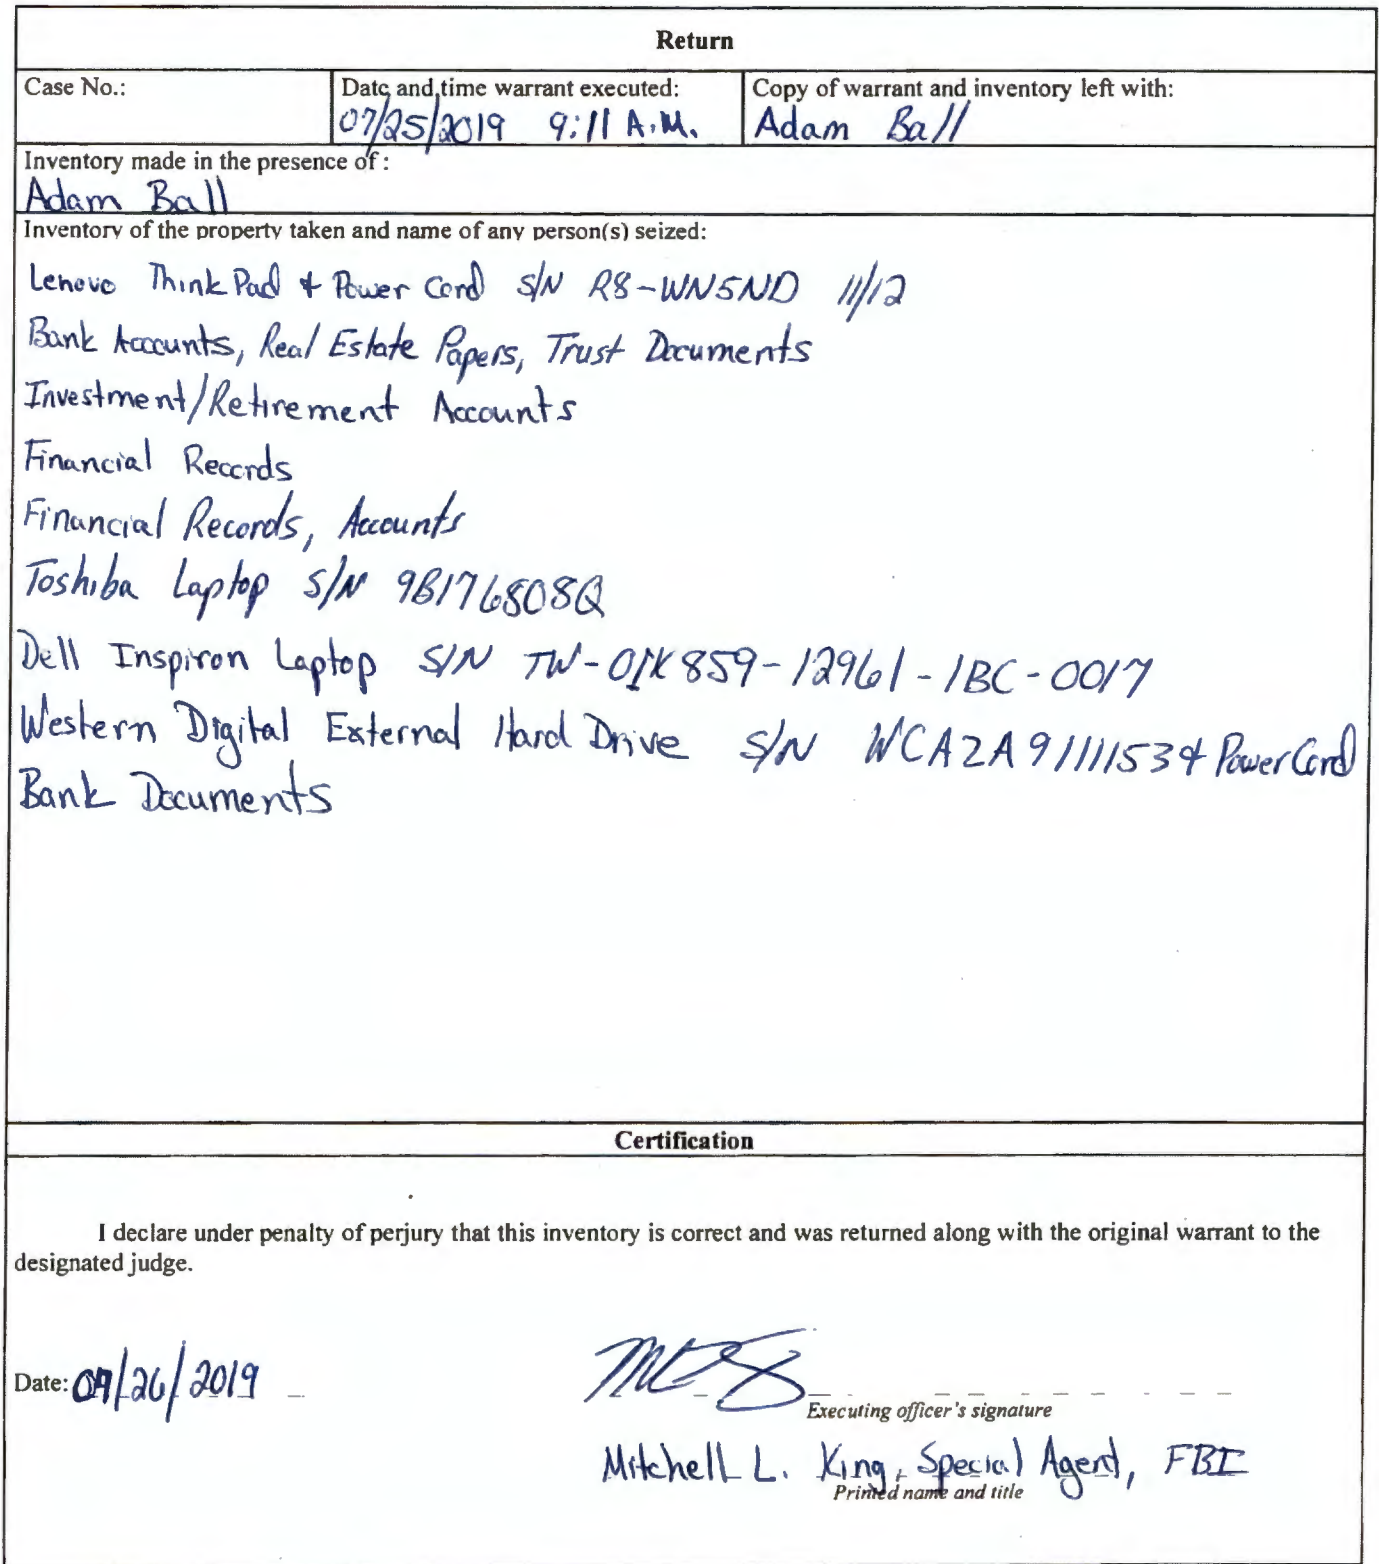 Return
Case No.:
Date and time warrant executed:
07/25/2019 9:11 A.M.
Copy of warrant and inventory left with:
Adam Ball
Inventory made in the presence of :
Adam Ball
Inventory of the property taken and name of any person(s) seized:
Lenovo ThinkPad & Power Cord S/N R8-WN5ND 11/12
Bank Accounts, Real Estate Papers, Trust Documents
Investment/Retirement Accounts
Financial Records
Financial Records, Accounts
Toshiba Laptop S/N 9B176808Q
Dell Inspiron Laptop S/N TW-01K859-12961-1BC-0017
Western Digital External Hard Drive S/N WCA2A9111153 & Power Cord
Bank Documents
Certification
I declare under penalty of perjury that this inventory is correct and was returned along with the original warrant to the
designated judge.
Date: 07/26/2019
Executing officer's signature
Mitchell L. King, Special Agent, FBI
Printed name and title